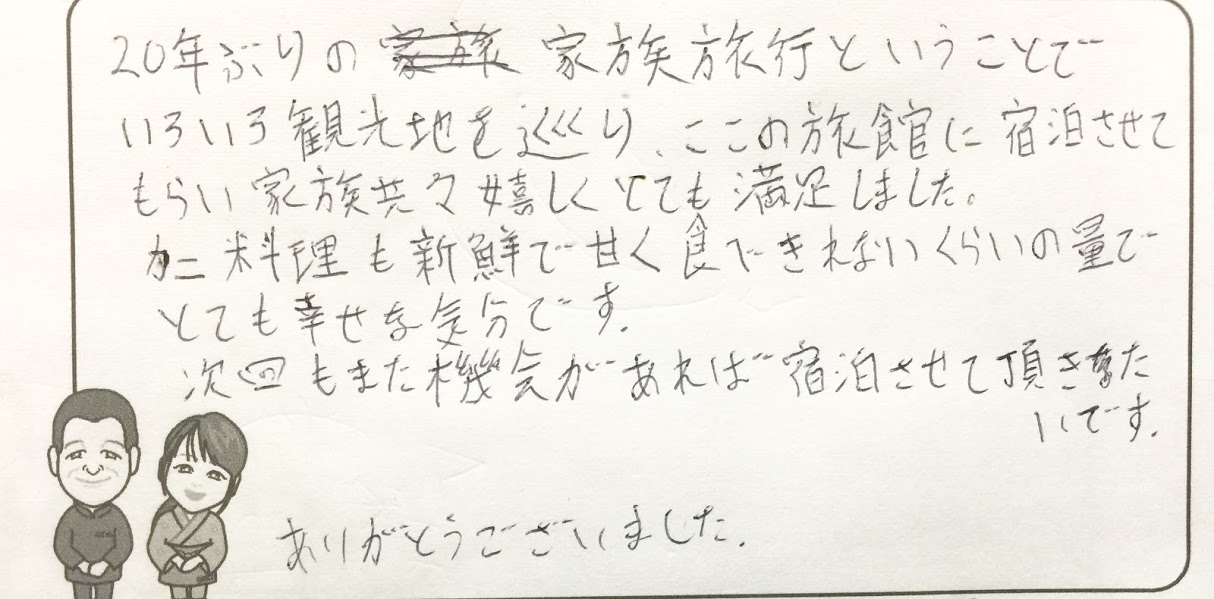 20年ぶりの 家族 家族旅行ということで
いろいろ観光地を巡り、ここの旅館に宿泊させて
もらい家族共々嬉しくとても満足しました。
カニ料理も新鮮で甘く食べきれないくらいの量で
とても幸せな気分です.
次回もまた機会があれば宿泊させて頂きた
いです.
ありがとうございました.